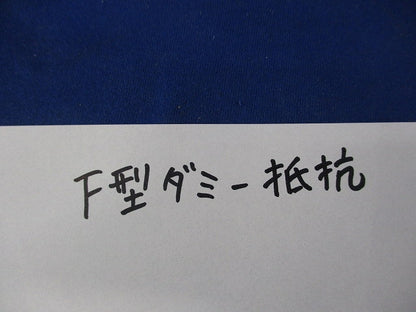 F型ダミー抵抗